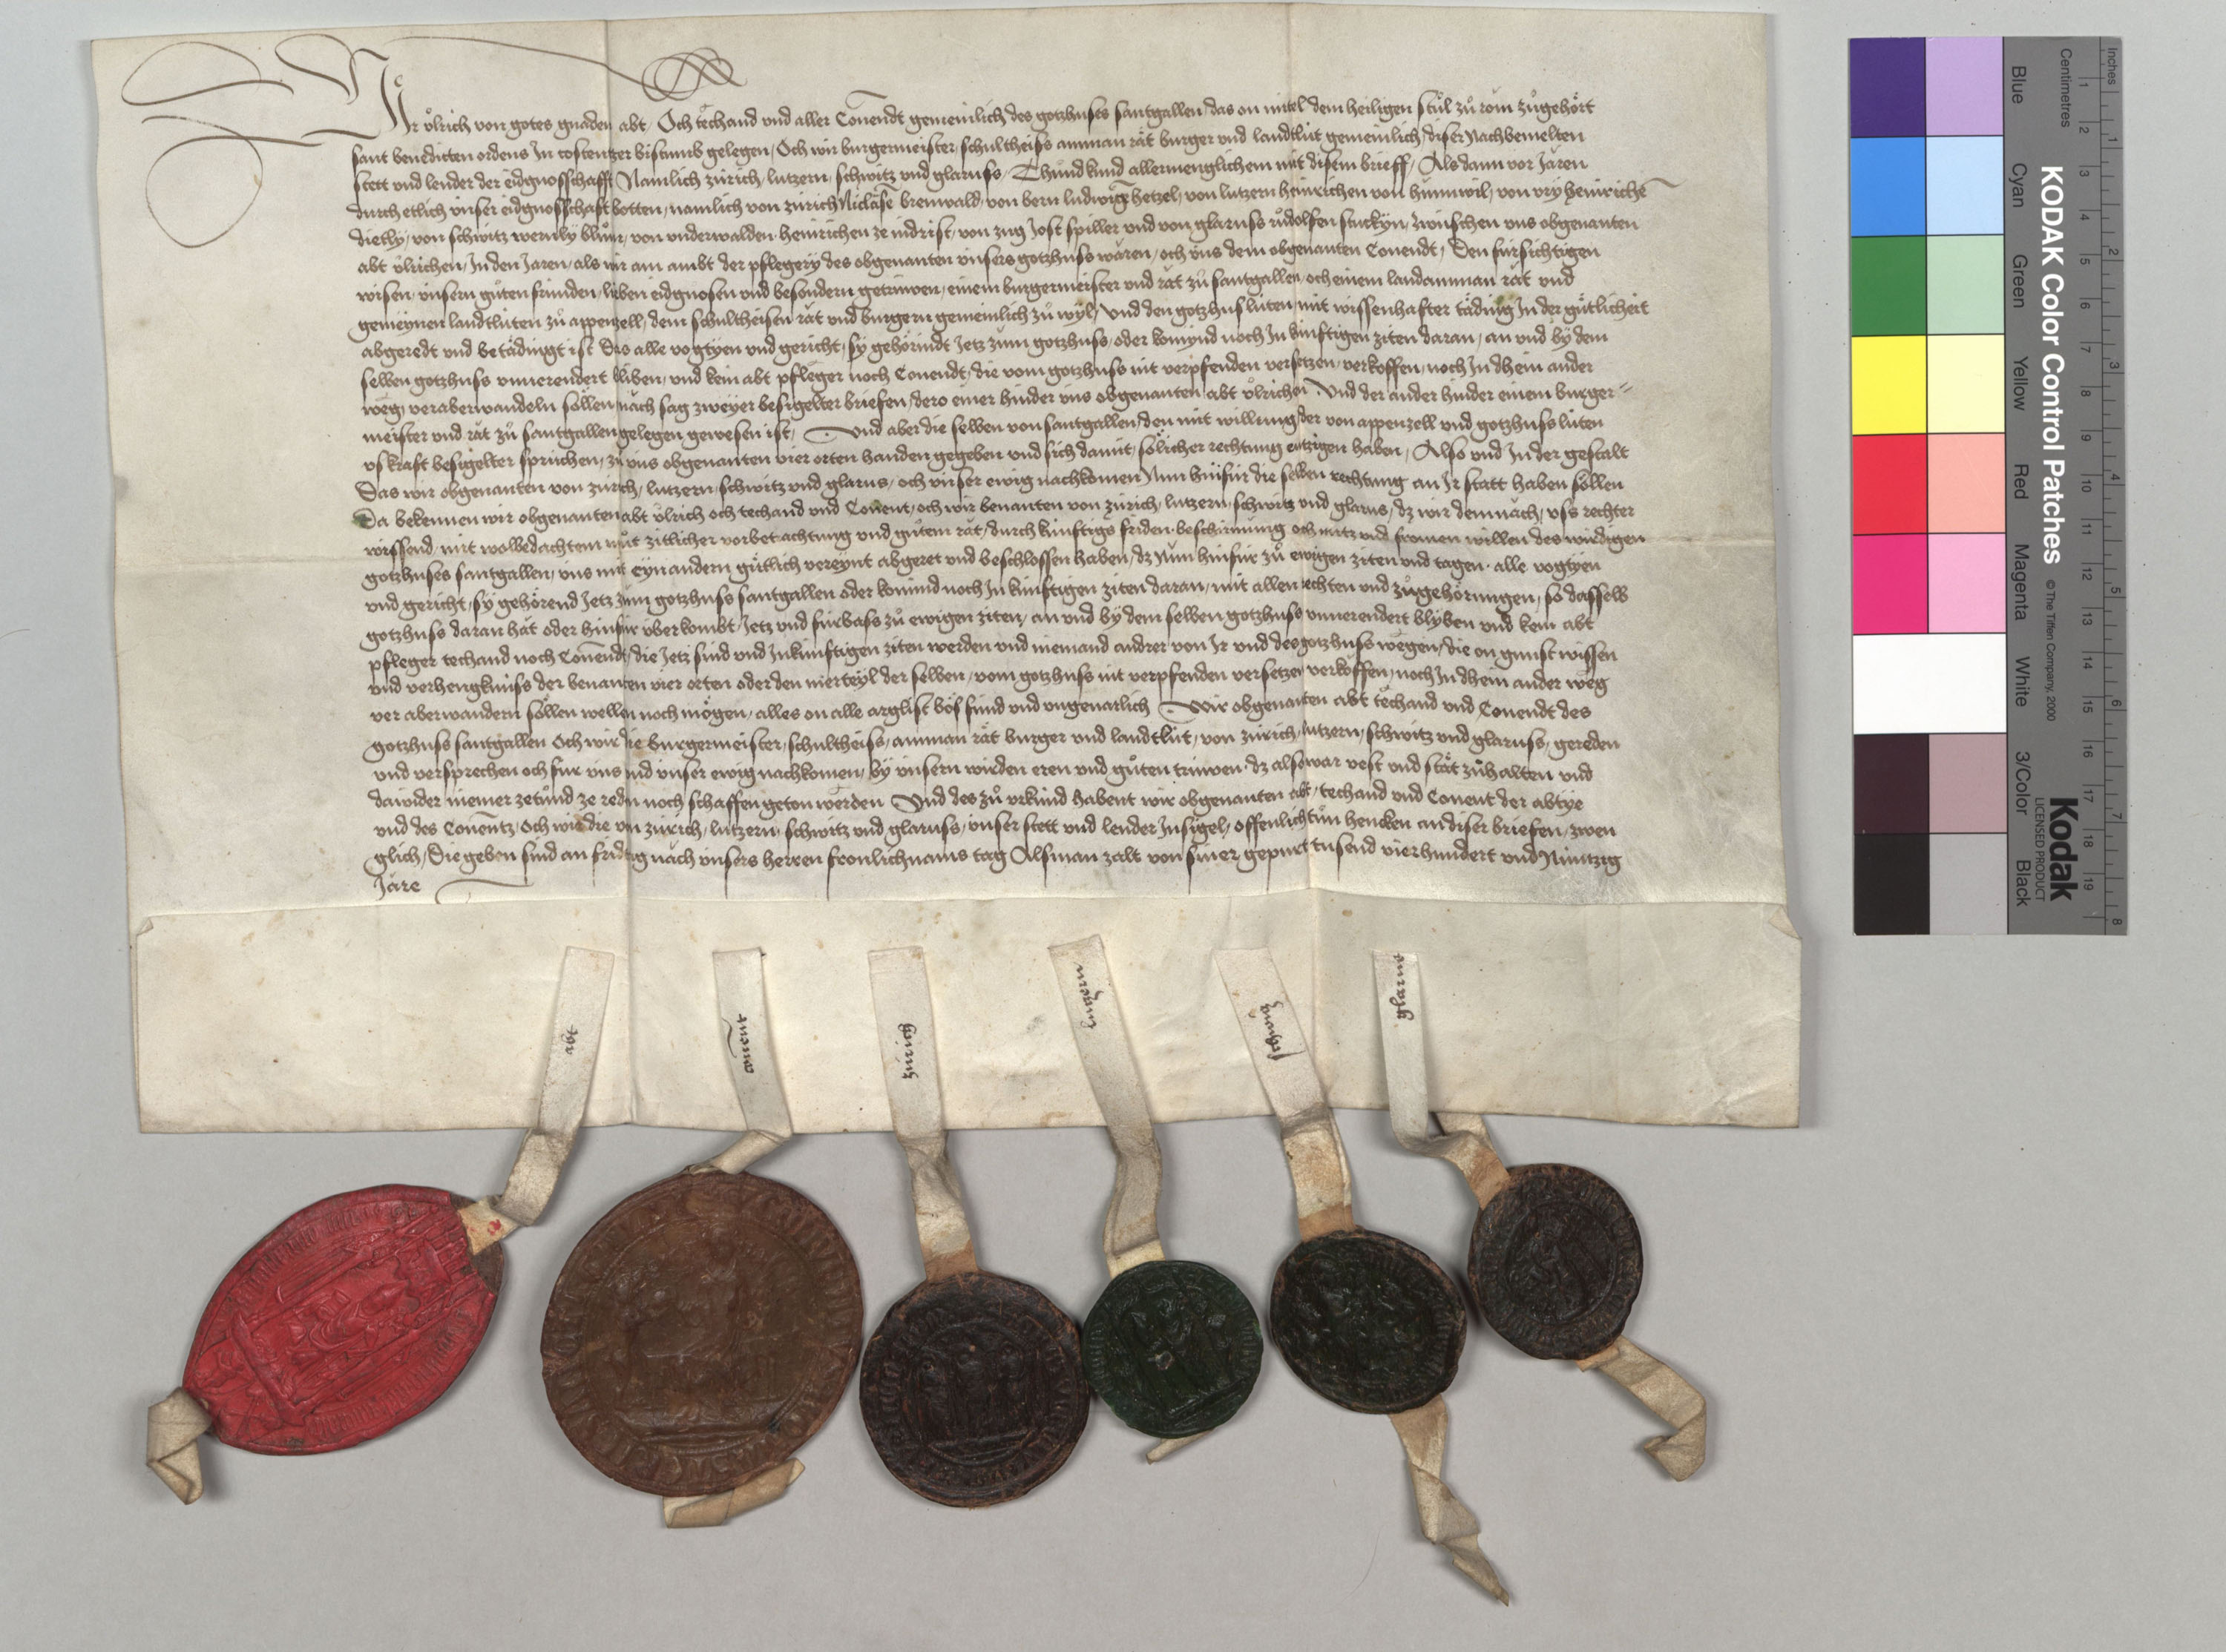 Wir ůlrich von gotes gnaden abt, Och techand vnd aller Conuendt gemeinlich des gotzhuses santgallen, das on mitel dem heiligen stůl zů rom zůgehört
sant benedicten ordens Jn costentzer bistumb gelegen, Och wir burgermeister schultheiss amman rät burger vnd landtlüt gemeinlich diser Nachbemelten
stett vnd lender der eidgnosschafft Namlich zürich, lutzern, schwitz vnd glaruss, Thůnd kund allermenglichem mit disem brieff, Als dann vor Jaren
durch etlich vnser eidgnosschaft botten, namlich von zürich Niclasē brenwald, von bern ludwigē hetzel, von lutzern heinrichen von hunwil, von vry heinrichē
dietly, von schwitz wernly blům, von vnderwalden heinrichen ze indrist, von zug Jost spiller vnd von glaruss růdolfen stuckyn, zwüschen vns obgenanten
abt ůlrichen, Jn den Jaren, als wir am ambt der pflegery des obgenanten vnsers gotzhuss wären, och vns dem obgenanten Conuendt, Den fürsichtigen
wisen, vnsern gůten fründen, lieben eidgnosen vnd besondern getrüwen, einem burgermeister vnd rät zů santgallen, och einem landamman rät vnd
gemeynen landtlüten zů appenzell, dem schultheisen rät vnd burgern gemeinlich zů wyl, vnd den gotzhuslüten, mit wissenhafter täding Jn der gütlicheit
abgeredt vnd betädingt ist Das alle vogtyen vnd gericht, sy gehörindt Jetz zum gotzhuss, oder komynd noch Jn künftigen ziten daran, an vnd by dem
selben gotzhuss vnuerendert bliben, vnd kein abt pfleger noch Conuendt, die vom gotzhuss nit verpfenden versetzen, verkoffen, noch Jn dhein ander
weg, veraberwandeln söllen, näch sag zweyer besigelter briefen, dero einer hinder vns obgenanten abt ůlrichen Vnd der ander hinder einem burger=
meister vnd rät zů santgallen gelegen gewesen ist, Vnd aber die selben von santgallen, den mit willung der von appenzell vnd gotzhusslüten
vs kraft besigelter sprüchen, zů vns obgenanten vier orten handen gegeben vnd sich damit, sölicher rechtung entzigen haben, Also vnd Jn der gestalt
Das wir obgenanten von zürich, lutzern, schwitz vnd glarus, och vnser ewig nachkomen Nun hinfür die selben rechtung an Jr statt haben söllen
Da bekennen wir obgenanten abt ůlrich och techand vnd Conent, och wir benanten von zürich, lutzern, schwitz vnd glarus, dz wir demnäch, vss rechter
wissend, mit wolbedachtem můt zitlicher vorbetrachtung vnd gůtem rät, durch künftigs friden beschirmung och nutz vnd fromen willen des wirdigen
gotzhuses santgallen, vns mit eynandern gütlich vereynt abgeret vnd beschlossen haben, dz Nun hinfür zů ewigen ziten vnd tagen alle vogtyen
vnd gericht, sy gehörend Jetz zum gotzhuss santgallen oder komind noch Jn künftigen ziten daran, mit allen rechten vnd zůgehörungen, so dasselb
gotzhuss daran hät oder hinfür überkombt, Jetz vnd fürbass zů ewigen ziten, an vnd by dem selben gotzhuss vnuerendert blyben vnd kein abt
pfleger techand noch Conuendt, die Jetz sind vnd Jn künftigen ziten werden vnd niemand andrer von Jr vnd des gotzhuss wegen, die on gunst wissen
vnd verhengknüss der benanten vier orten oder den merteyl der selben, vom gotzhuss nit verpfenden versetzen verköffen, noch Jn dhein ander weg
ver aberwandern söllen wellen noch mögen, alles on alle arglist bös fünd vnd vngeuarlich Wir obgenanten abt techand vnd Conuendt des
gotzhuss santgallen Och wir die burgermeister, schultheiss, amman rät burger vnd landtlüt, von zürich, lutzern, schwitz vnd glaruss, gereden
vnd versprechen och für vns vnd vnser ewig nachkomen, by vnsern wirden eren vnd gůten trüwen, dz also war vest vnd stät zůhalten vnd
dawider niemer zetůnd ze reden noch schaffen geton werden Vnd des zů vrkund habent wir obgenanten abt, techand vnd Conent der abtye
vnd des Conuentz, och wir die von zürich, lutzern, schwitz vnd glaruss, vnser stett vnd lender Jnsigel, offenlich tůn hencken an diser briefen, zwen
glich, Die geben sind an fridtag näch vnsers herren fronlichnams tag Als man zalt von siner gepurt tusend vierhundert vnd Nüntzig
Järe
abt
conuent
zürich
lutzern
schwitz
glarus
KODAK Color Control Patches
© The Tiffen Company, 2000
Kodak
LICENSED PRODUCT
Blue Cyan Green Yellow Red Magenta White 3/Color Black
Centimetres 1 2 3 4 5 6 7 8 9 10 11 12 13 14 15 16 17 18 19
Inches 1 2 3 4 5 6 7 8